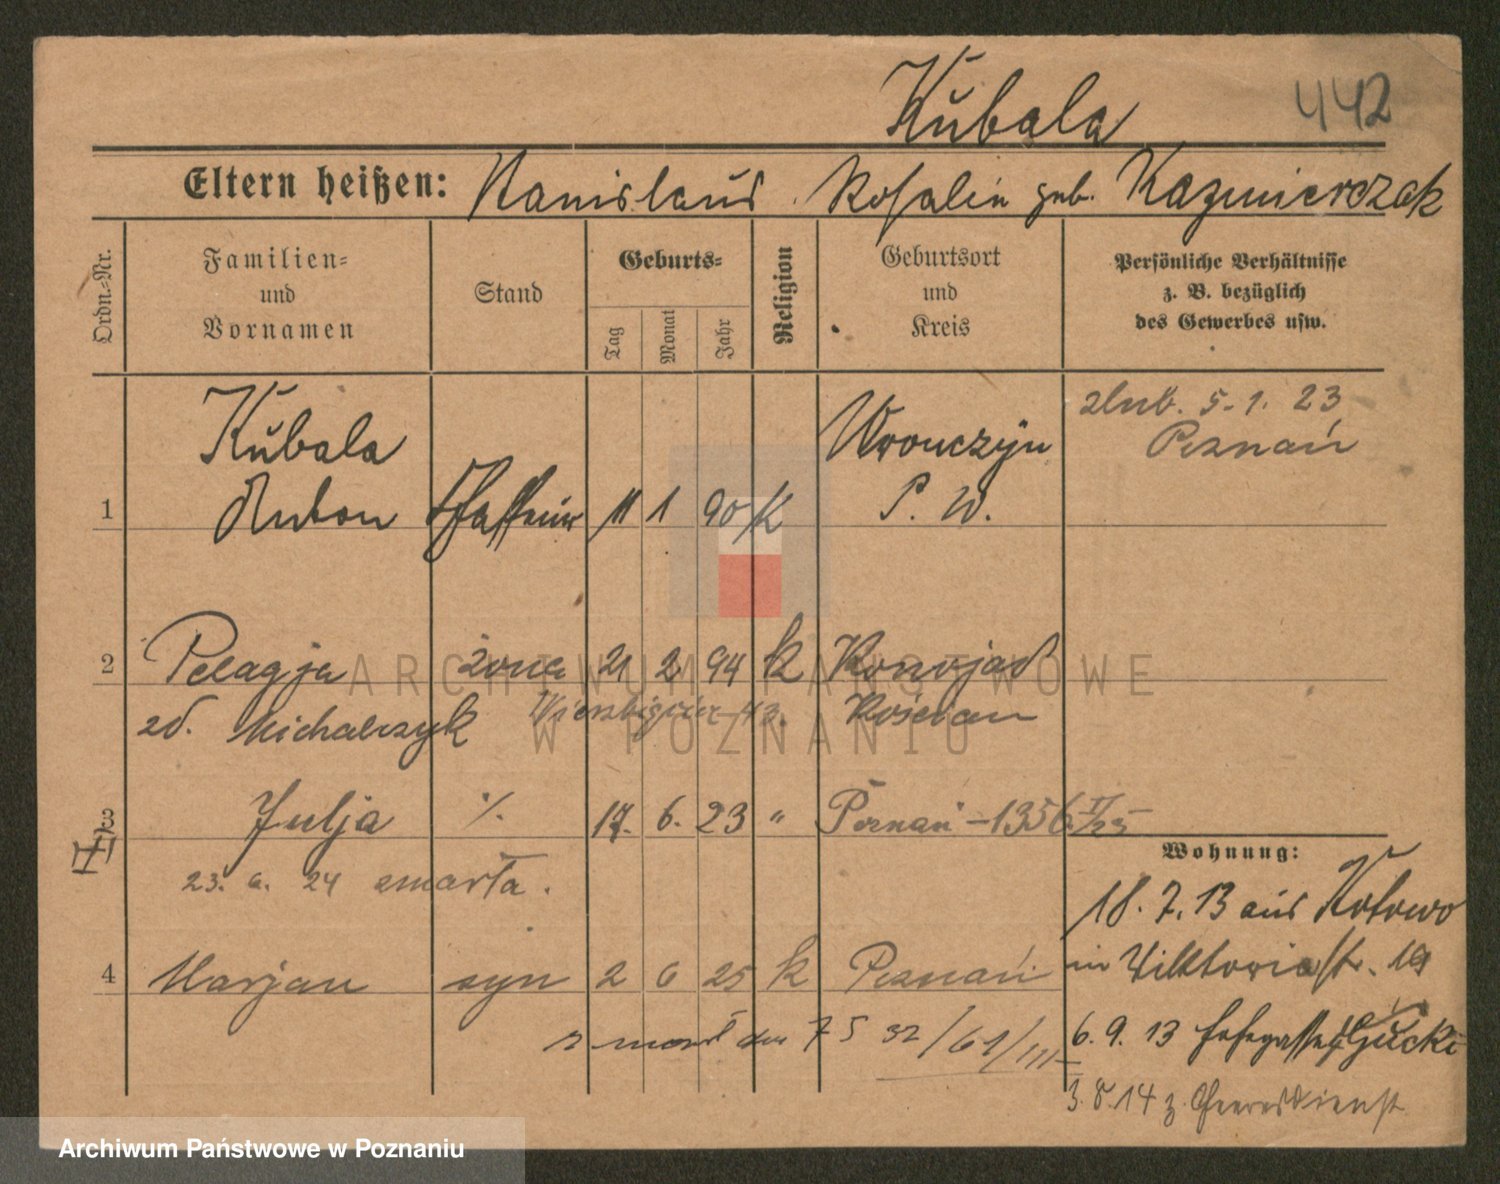 Kubala 442
Eltern heißen: Stanislaus Rosalin geb. Kazmierczak
Ordn.-Nr.
Familien-
und
Vornamen
Stand
Geburts-
Tag
Monat
Jahr
Religion
Geburtsort
und
Kreis
Persönliche Verhältnisse
z. B. bezüglich
des Gewerbes usw.
Kubala Wronczyn
1 Anton 11 1 90 K P. W.
ślub. 5. 1. 23
Poznań
2 Pelagja żona 21 2 94 K Konojad
zd. Michalczyk 43. Kościan
3 Julja ·/. 17. 6. 23 " Poznań - 1356
23. 6. 24 zmarła.
4 Marjan syn 2 6 25 k Poznań
7 5 32/61/III
Wohnung:
18. 7. 13 aus Kotowo
in Viktoriastr. 19
6. 9. 13
3. 8. 14 z. Heeresdienst
ARCHIWUM PAŃSTWOWE
W POZNANIU
Archiwum Państwowe w Poznaniu